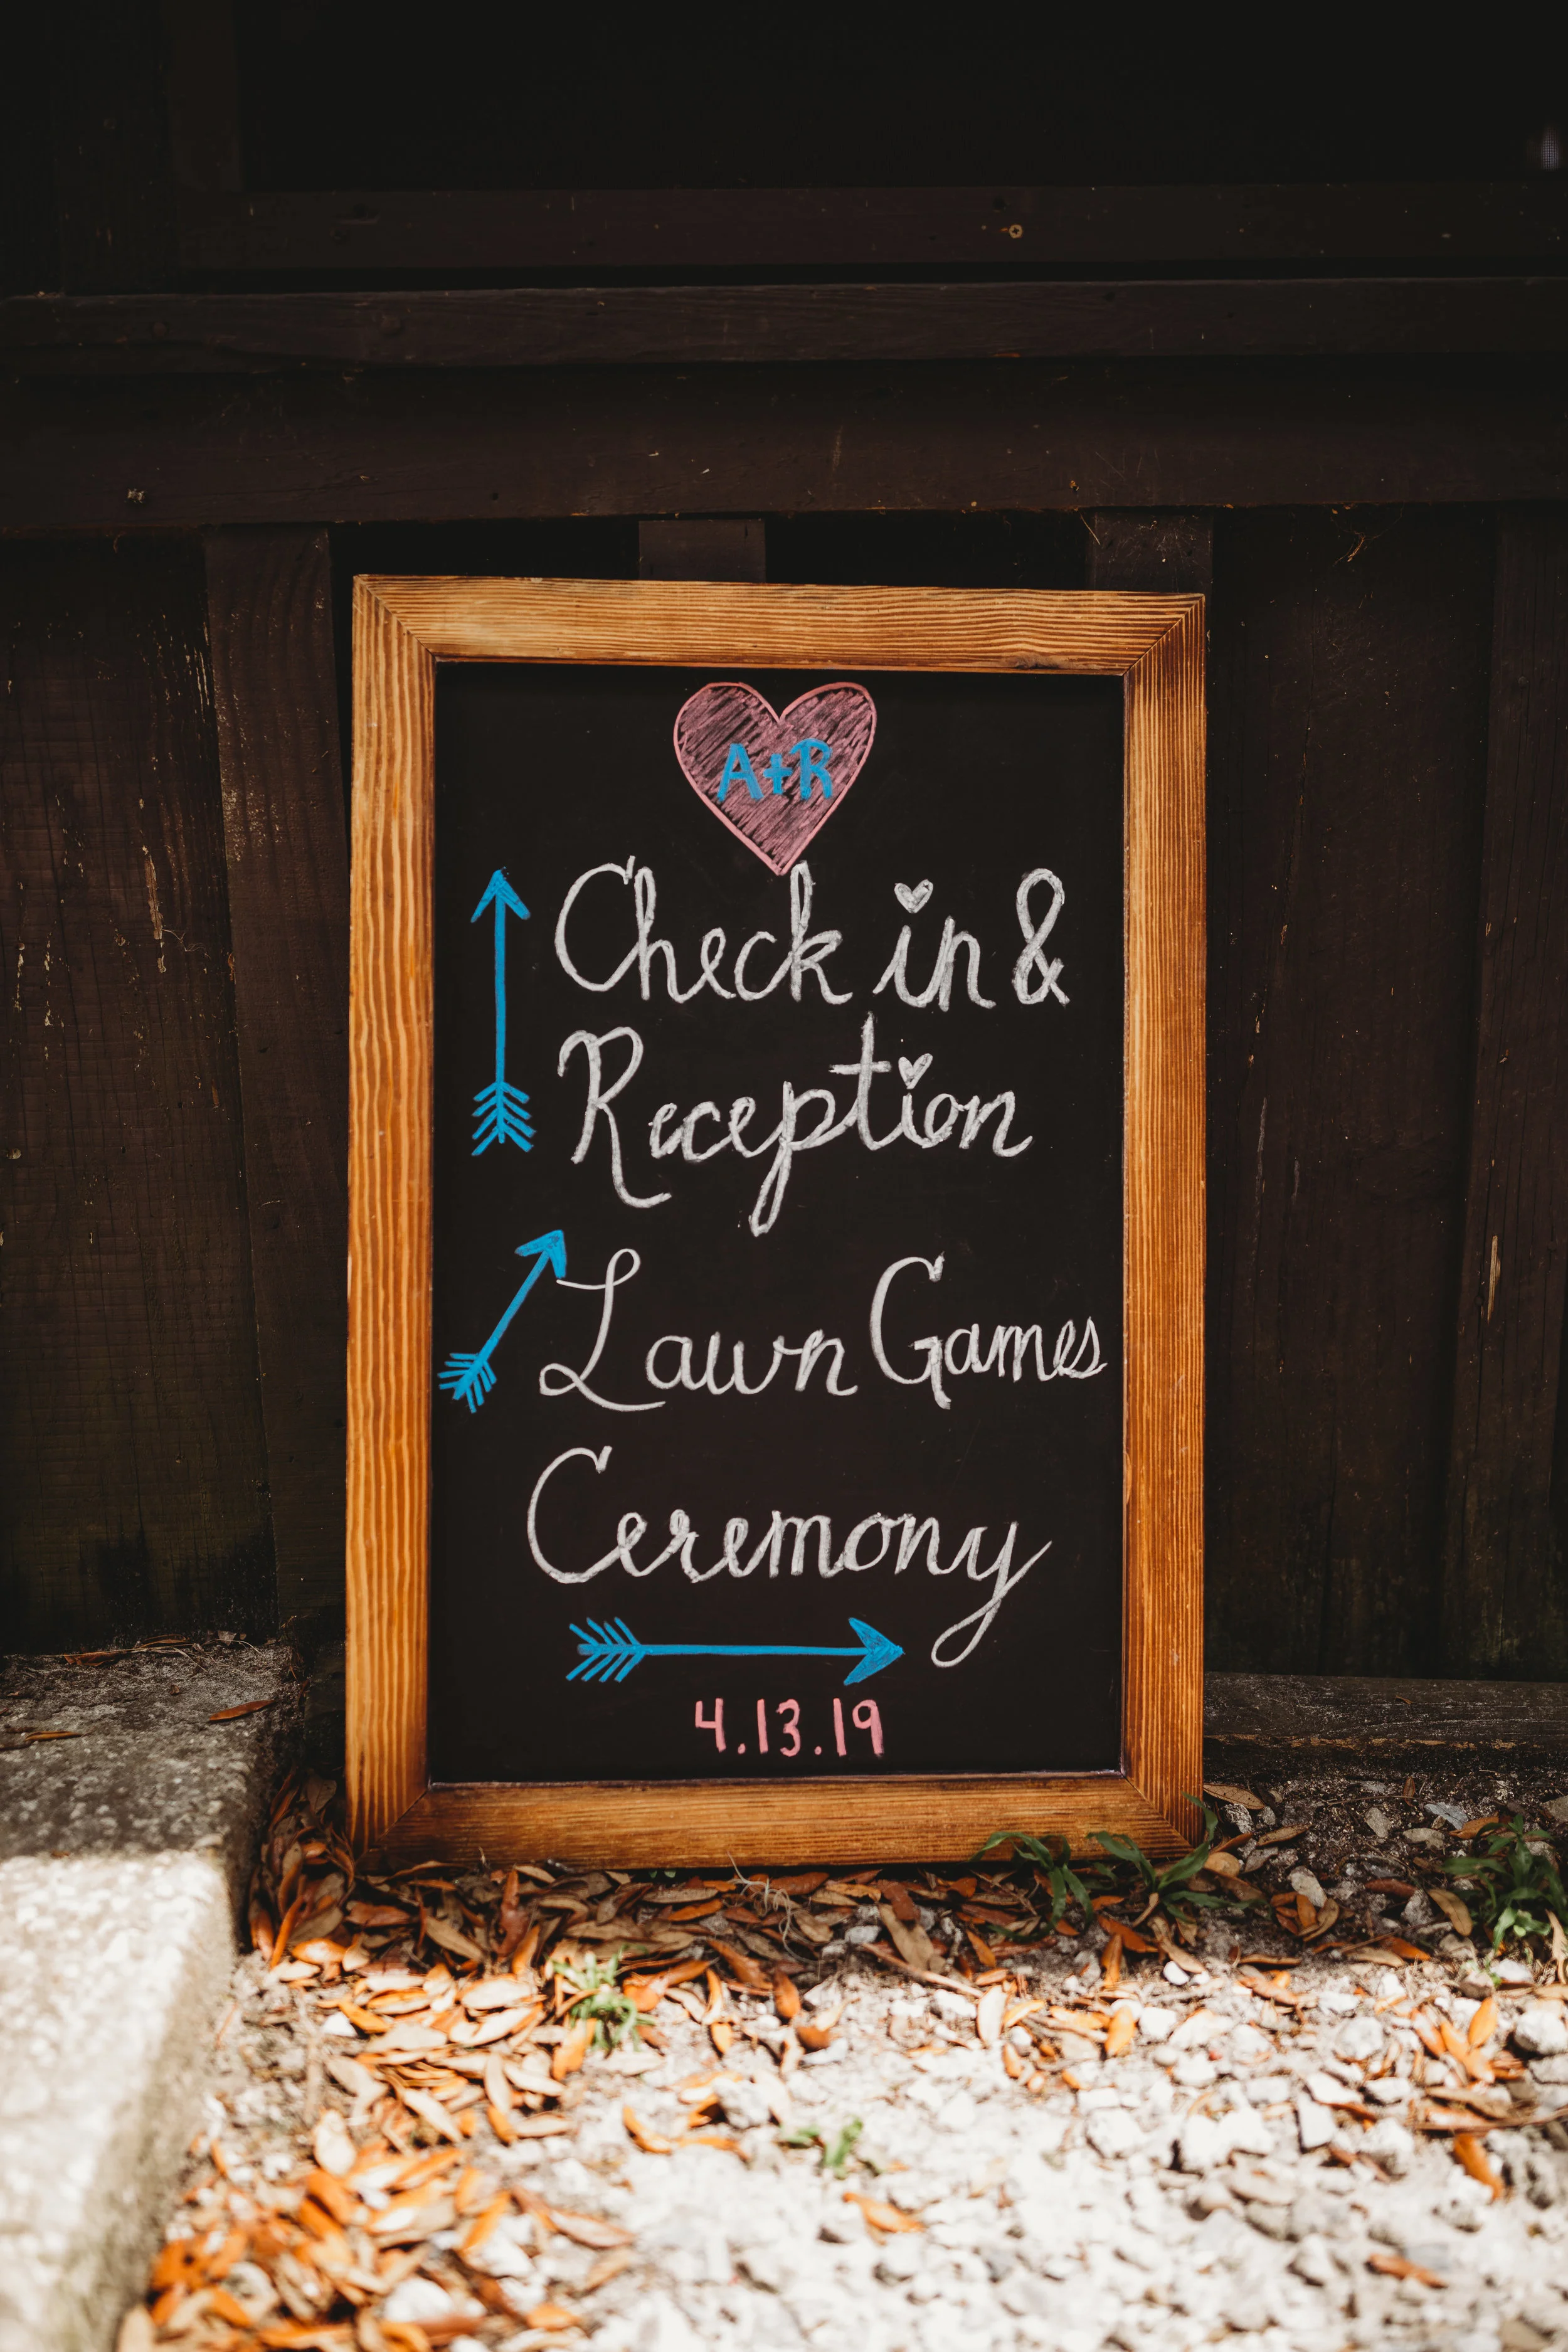 A+R
Check in &
Reception
Lawn Games
Ceremony
4.13.19